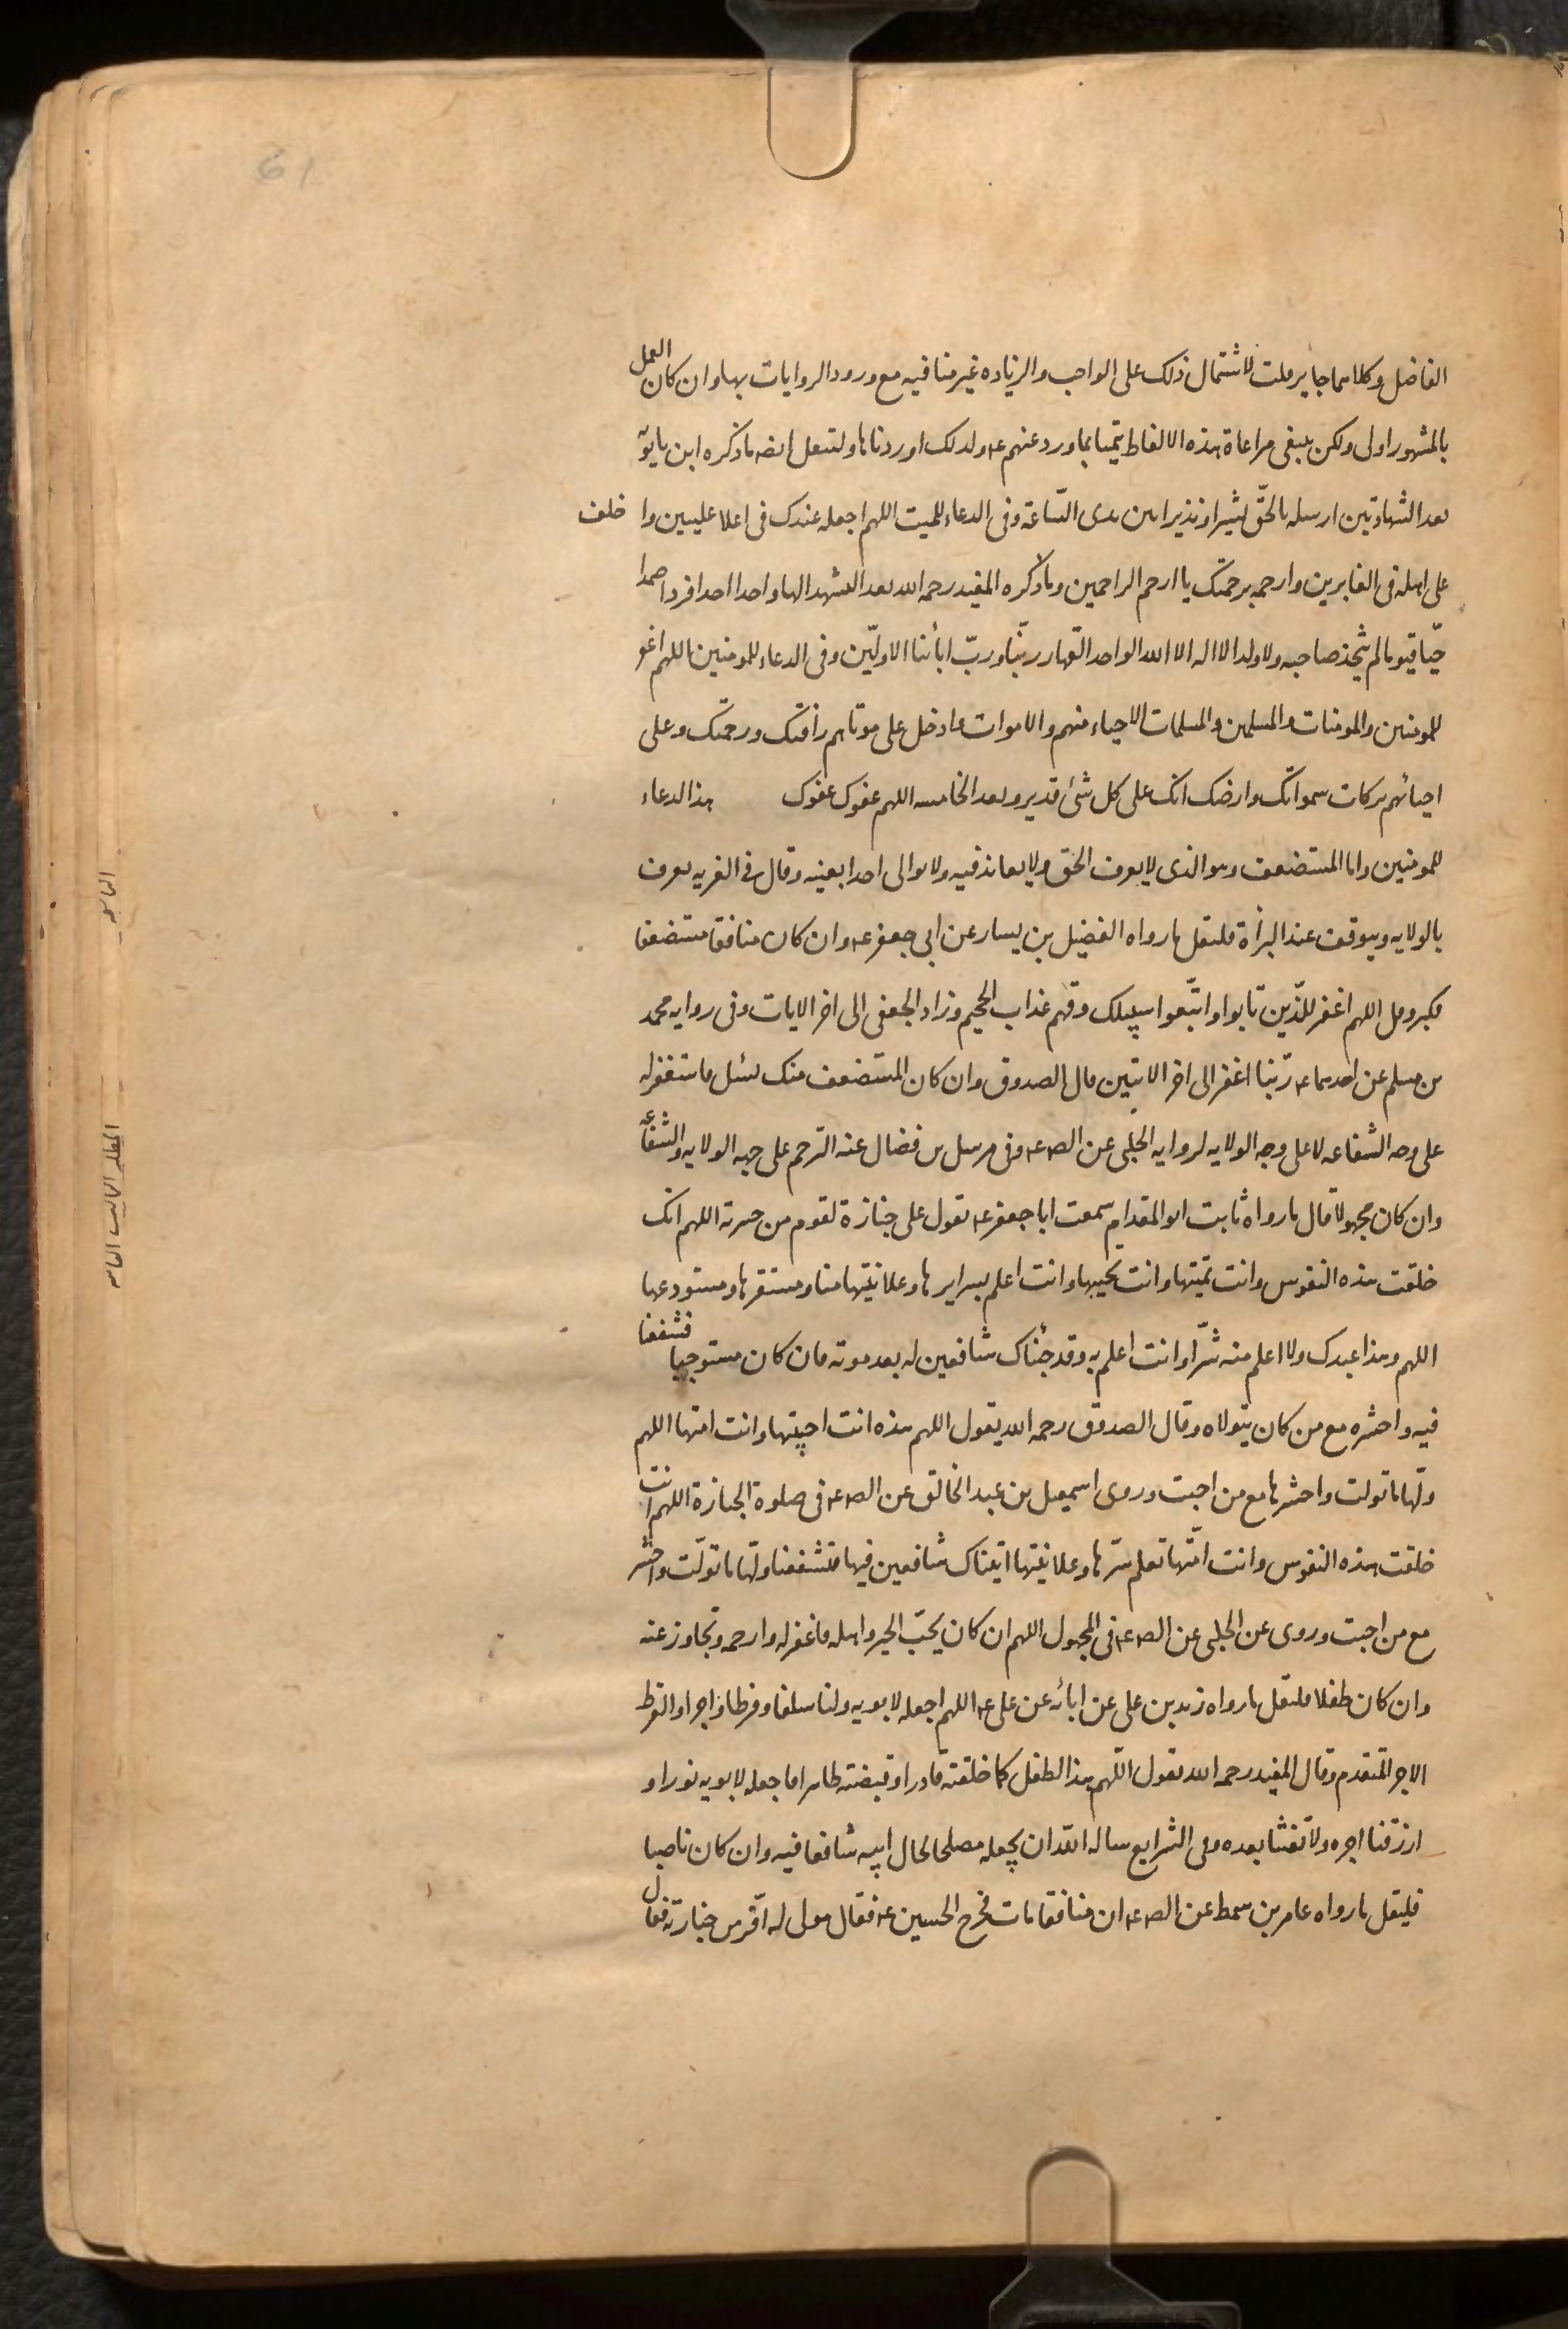 الفاضل وكلاهما جايز قلت لاشتمال ذلك على الواجب والزياده غير منافيه مع ورود الروايات بها وان كان العمل
بالمشهور اولى ولكن ينبغى مراعاة هذه الالفاظ تيمّنا بما ورد عنهم ع ولذلك اوردناها وليقل ايضا ما ذكره ابن بابويه
بعد الشهادتين ارسله بالحقّ بشيرا ونذيرا بين يدى السّاعة وفى الدعاء للميت اللهم اجعله عندك فى اعلا عليين واخلف
على اهله فى الغابرين وارحمه برحمتك يا ارحم الراحمين وما ذكره المفيد رحمه الله بعد التشهد الها واحدا احدا فردا صمدا
حيّا قيّوما لم يتّخذ صاحبه ولا ولدا لا اله الا الله الواحد القهار ربّنا وربّ ابأئنا الاولّين وفى الدعاء للمومنين اللهم اغفر
للمومنين والمومنات والمسلمين والمسلمات الاحياء منهم والاموات وادخل على موتاهم رافتك ورحمتك وعلى
احيائهم بركات سمواتك وارضك انك على كل شئ قدير وبعد الخامسه اللهم عفوك عفوك هذا الدعاء
للمومنين واما المستضعف وهو الذى لا يعرف الحق ولا يعاند فيه ولا يوالى احدا بعينه وقال فى الغريه يعرف
بالولايه ويتوقف عند البرأة فليقل ما رواه الفضيل بن يسار عن ابى جعفر ع وان كان منافقا مستضعفا
فكبر وقل اللهم اغفر للّذين تابوا واتّبعوا سبيلك وقهم عذاب الجحيم وزاد الجعفى الى اخر الايات وفى روايه محمد
بن مسلم عن احدهما ع ربّنا اغفر الى اخر الايتين قال الصدوق وان كان المستضعف منك بسبيل فاستغفر له
على وجه الشفاعه لا على وجه الولايه لروايه الحلبى عن الص ع وفى مرسل بن فضال عنه الترحم على جهه الولايه والشفاعه
وان كان مجهولا قال ما رواه ثابت ابو المقدام سمعت ابا جعفر ع يقول على جنازة لقوم من جيرته اللهم انك
خلقت هذه النفوس وانت تميتها وانت تحييها وانت اعلم بسرايرها وعلانيتها منا ومستقرها ومستودعها
اللهم وهذا عبدك ولا اعلم منه شرّا وانت اعلم به وقد جئناك شافعين له بعد موته فان كان مستوجبا فشفعنا
فيه واحشره مع من كان يتولاه وقال الصدوق رحمه الله يقول اللهم هذه انت احييتها وانت امتها اللهم
ولّها ما تولت واحشرها مع من احبت وروى اسمعيل بن عبد الخالق عن الص ع فى صلوة الجنازة اللهم انت
خلقت هذه النفوس وانت امتّها تعلم سرّها وعلانيتها اتيناك شافعين فيها فشفعنا ولّها ما تولّت واحشرها
مع من احبت وروى عن الحلبى عن الص ع فى المجهول اللهم ان كان يحبّ الخير واهله فاغفر له وارحمه وتجاوز عنه
وان كان طفلا فليقل ما رواه زيد بن على عن ابائه عن على ع اللهم اجعله لابويه ولنا سلفا وفرطا واجرا والفرط
الاجر المتقدم وقال المفيد رحمه الله يقول اللّهم هذا الطفل كما خلقته قادرا وقبضته طاهرا فاجعله لابويه نورا و
ارزقنا اجره ولا تفتنّا بعده وفى الشرايع ساله الله ان يجعله مصلحا لحال ابيه شافعا فيه وان كان ناصبا
فليقل ما رواه عامر بن سمط عن الص ع ان منافقا مات فخرج الحسين ع فقال مولى له افرّ من جنازته فقال
61